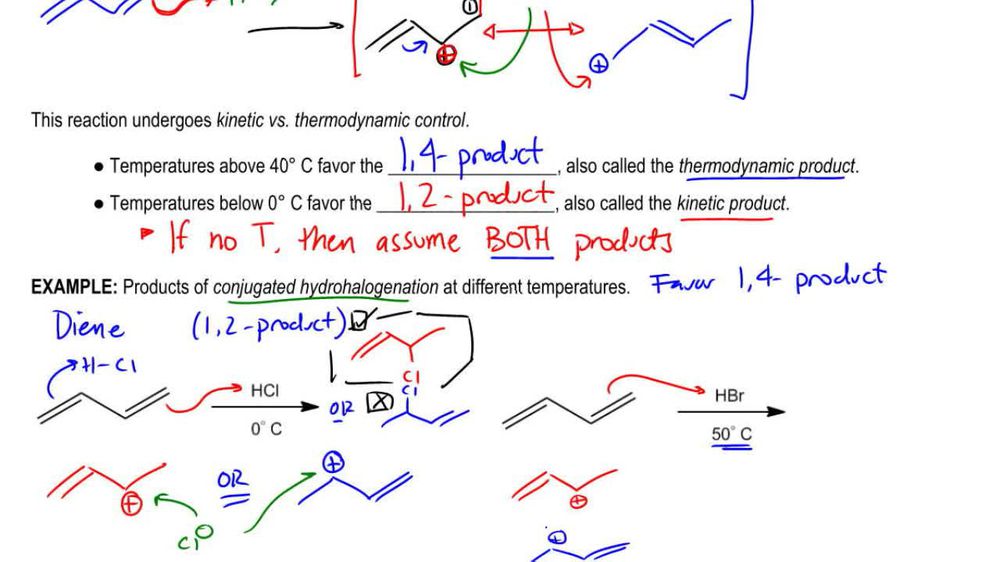 This reaction undergoes kinetic vs. thermodynamic control.
● Temperatures above 40° C favor the 1,4-product, also called the thermodynamic product.
● Temperatures below 0° C favor the 1,2-product, also called the kinetic product.
If no T, then assume BOTH products
EXAMPLE: Products of conjugated hydrohalogenation at different temperatures. Favor 1,4-product
Diene (1,2-product)
H-Cl
Cl
HCl
Cl
HBr
OR
0° C
50° C
OR
Cl